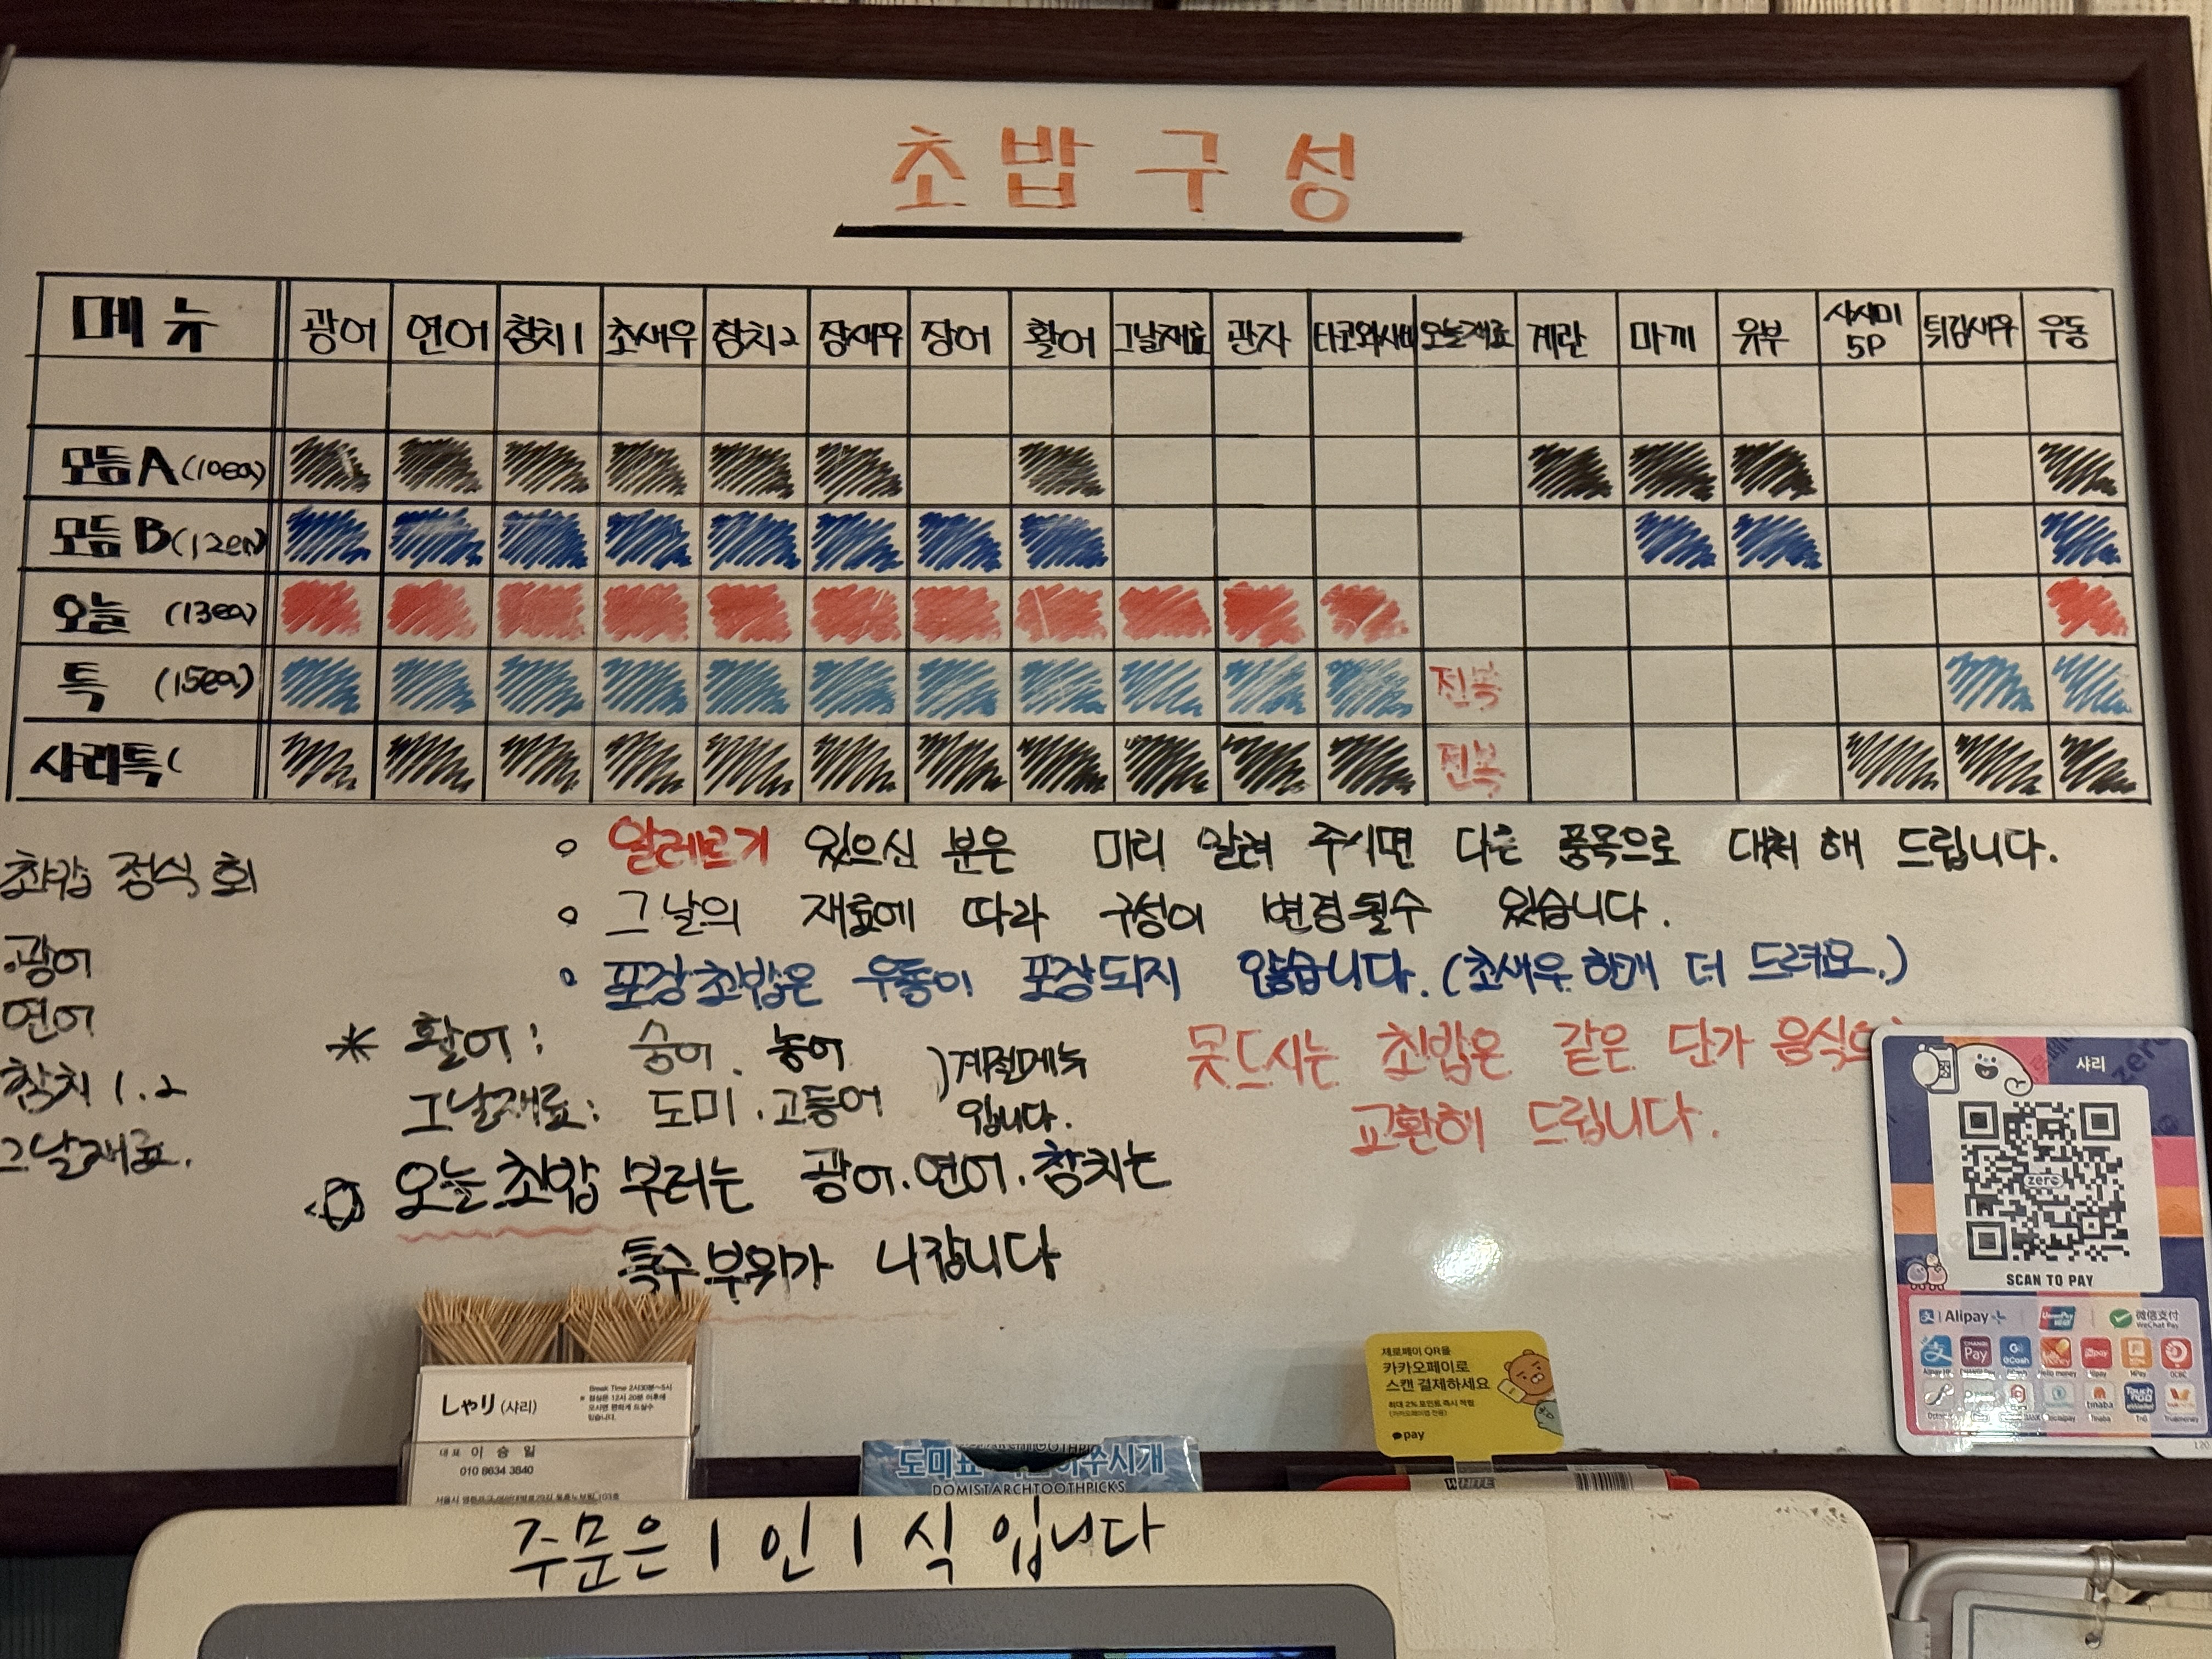 초밥구성
메뉴 광어 연어 참치1 초새우 참치2 장새우 장어 활어 그날재료 관자 타코와사비 오늘재료 계란 마끼 유부 사시미 5P 튀김새우 우동
모듬A(10ea)
모듬B(12ea)
오늘 (13ea)
특 (15ea) 전복
샤리특( 전복
초밥 정식 회
·광어
연어
참치 1.2
그날재료.
◦ 알레르기 있으신 분은 미리 말려 주시면 다른 품목으로 대처 해 드립니다.
◦ 그날의 재료에 따라 구성이 변경될수 있습니다.
◦ 포장초밥은 우동이 포장되지 않습니다.(초새우 한개 더 드려요.)
* 활어: 숭어. 농어
그날재료: 도미.고등어
)계절메뉴
입니다.
못드시는 초밥은 같은 단가 음식으
교환해 드립니다.
오늘초밥 부터는 광어.연어.참치는
특수부위가 나갑니다
샤리
zero
SCAN TO PAY
Alipay+
UnionPay
微信支付
WeChat Pay
제로페이 QR을
카카오페이로
스캔 결제하세요
최대 2% 포인트 즉시 적립
pay
しゃり (샤리)
Break Time 2시30분~5시
점심은 12시 20분 이후에
오시면 편하게 드실수
있습니다.
대표 이승일
010 8634 3840
DOMISTARCHTOOTHPICKS
WHITE
주문은 1인 1식 입니다